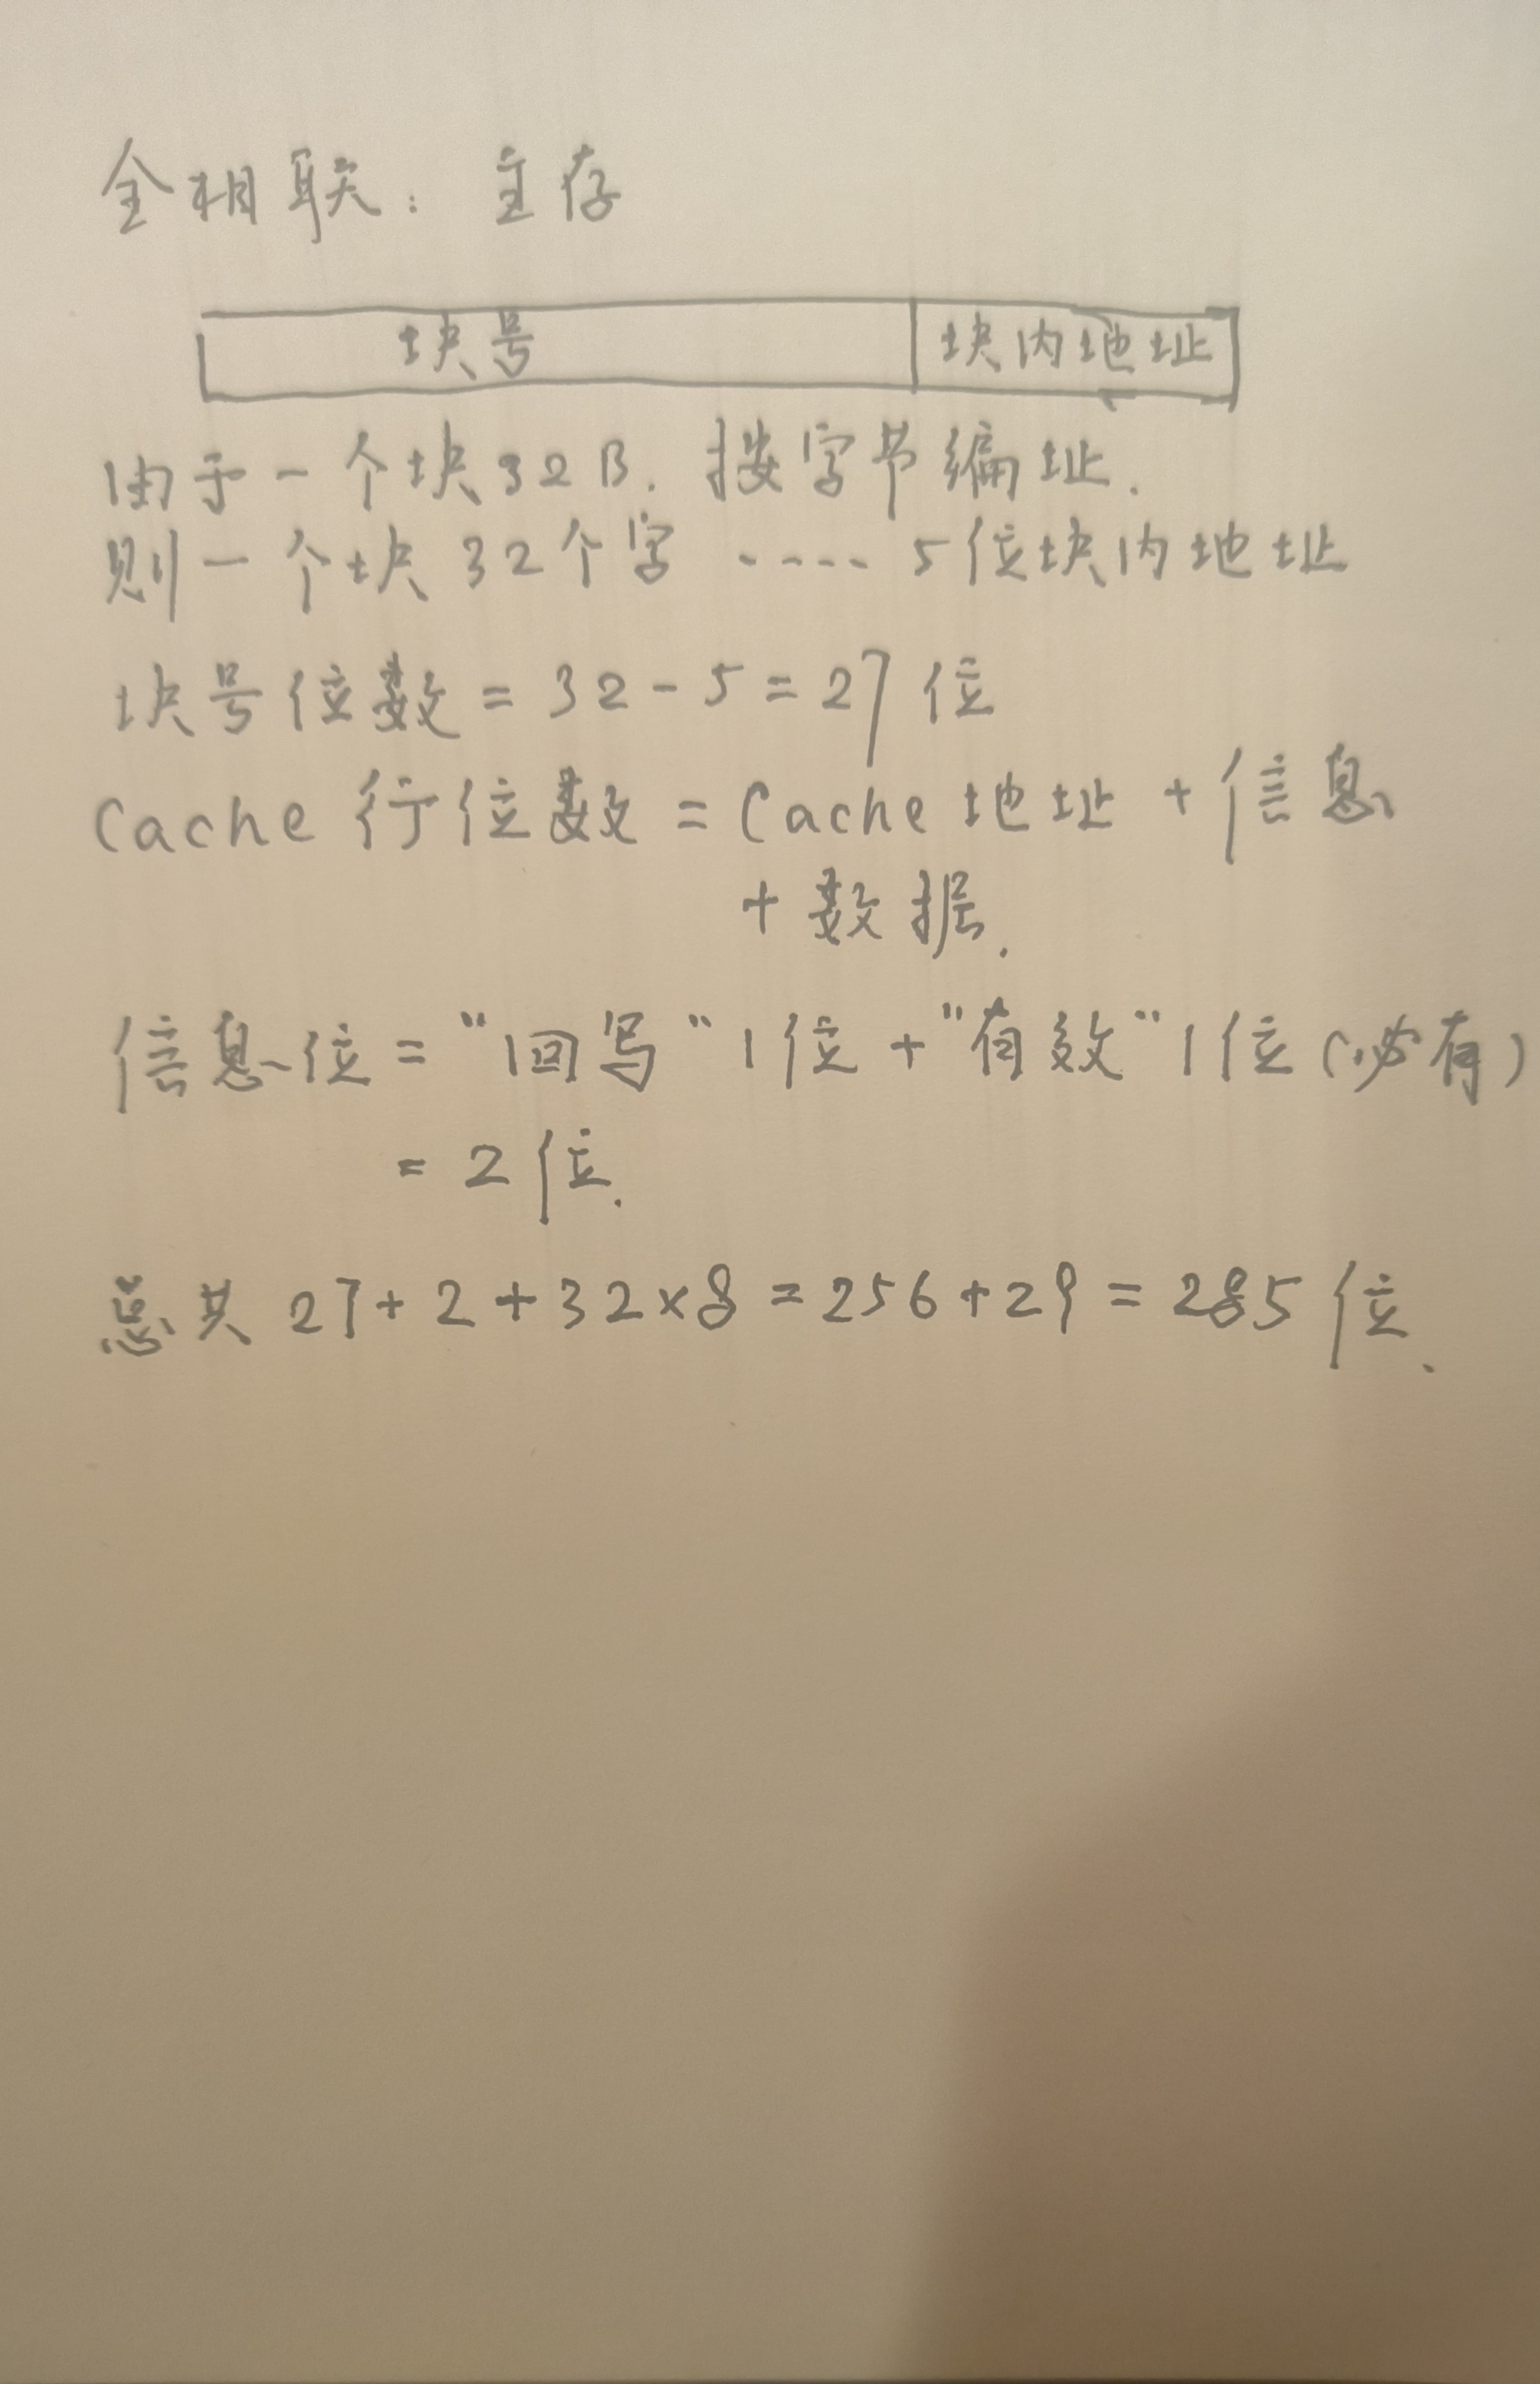 全相联：主存
块号 块内地址
由于一个块32B. 按字节编址.
则一个块32个字 ---- 5位块内地址
块号位数=32-5=27位
Cache行位数=Cache地址+信息
+数据.
信息位="回写"1位+"有效"1位(必有)
=2位.
总共27+2+32×8=256+29=285位.